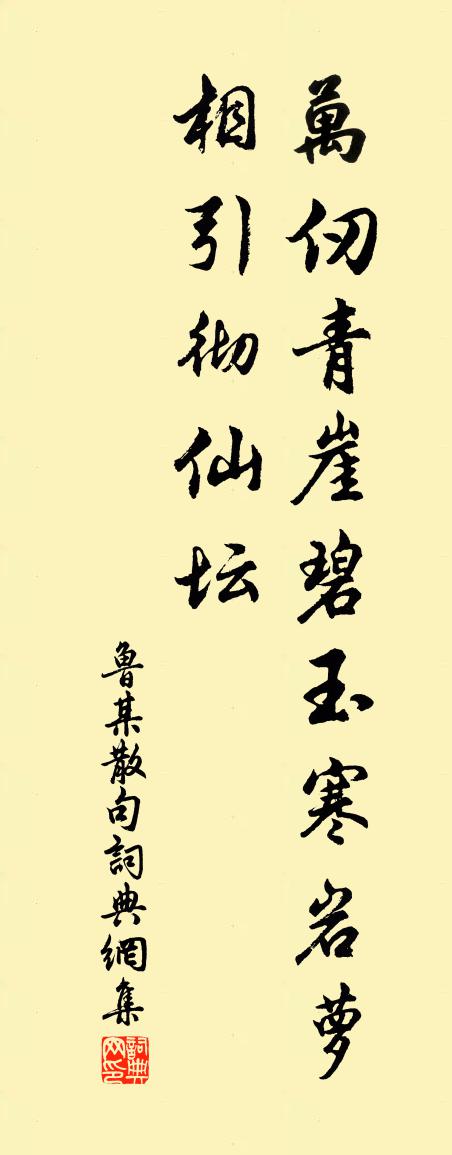 萬仞青崖碧玉寒岩萝
相引彻仙坛
鲁某散句詞典網集
詞典网印